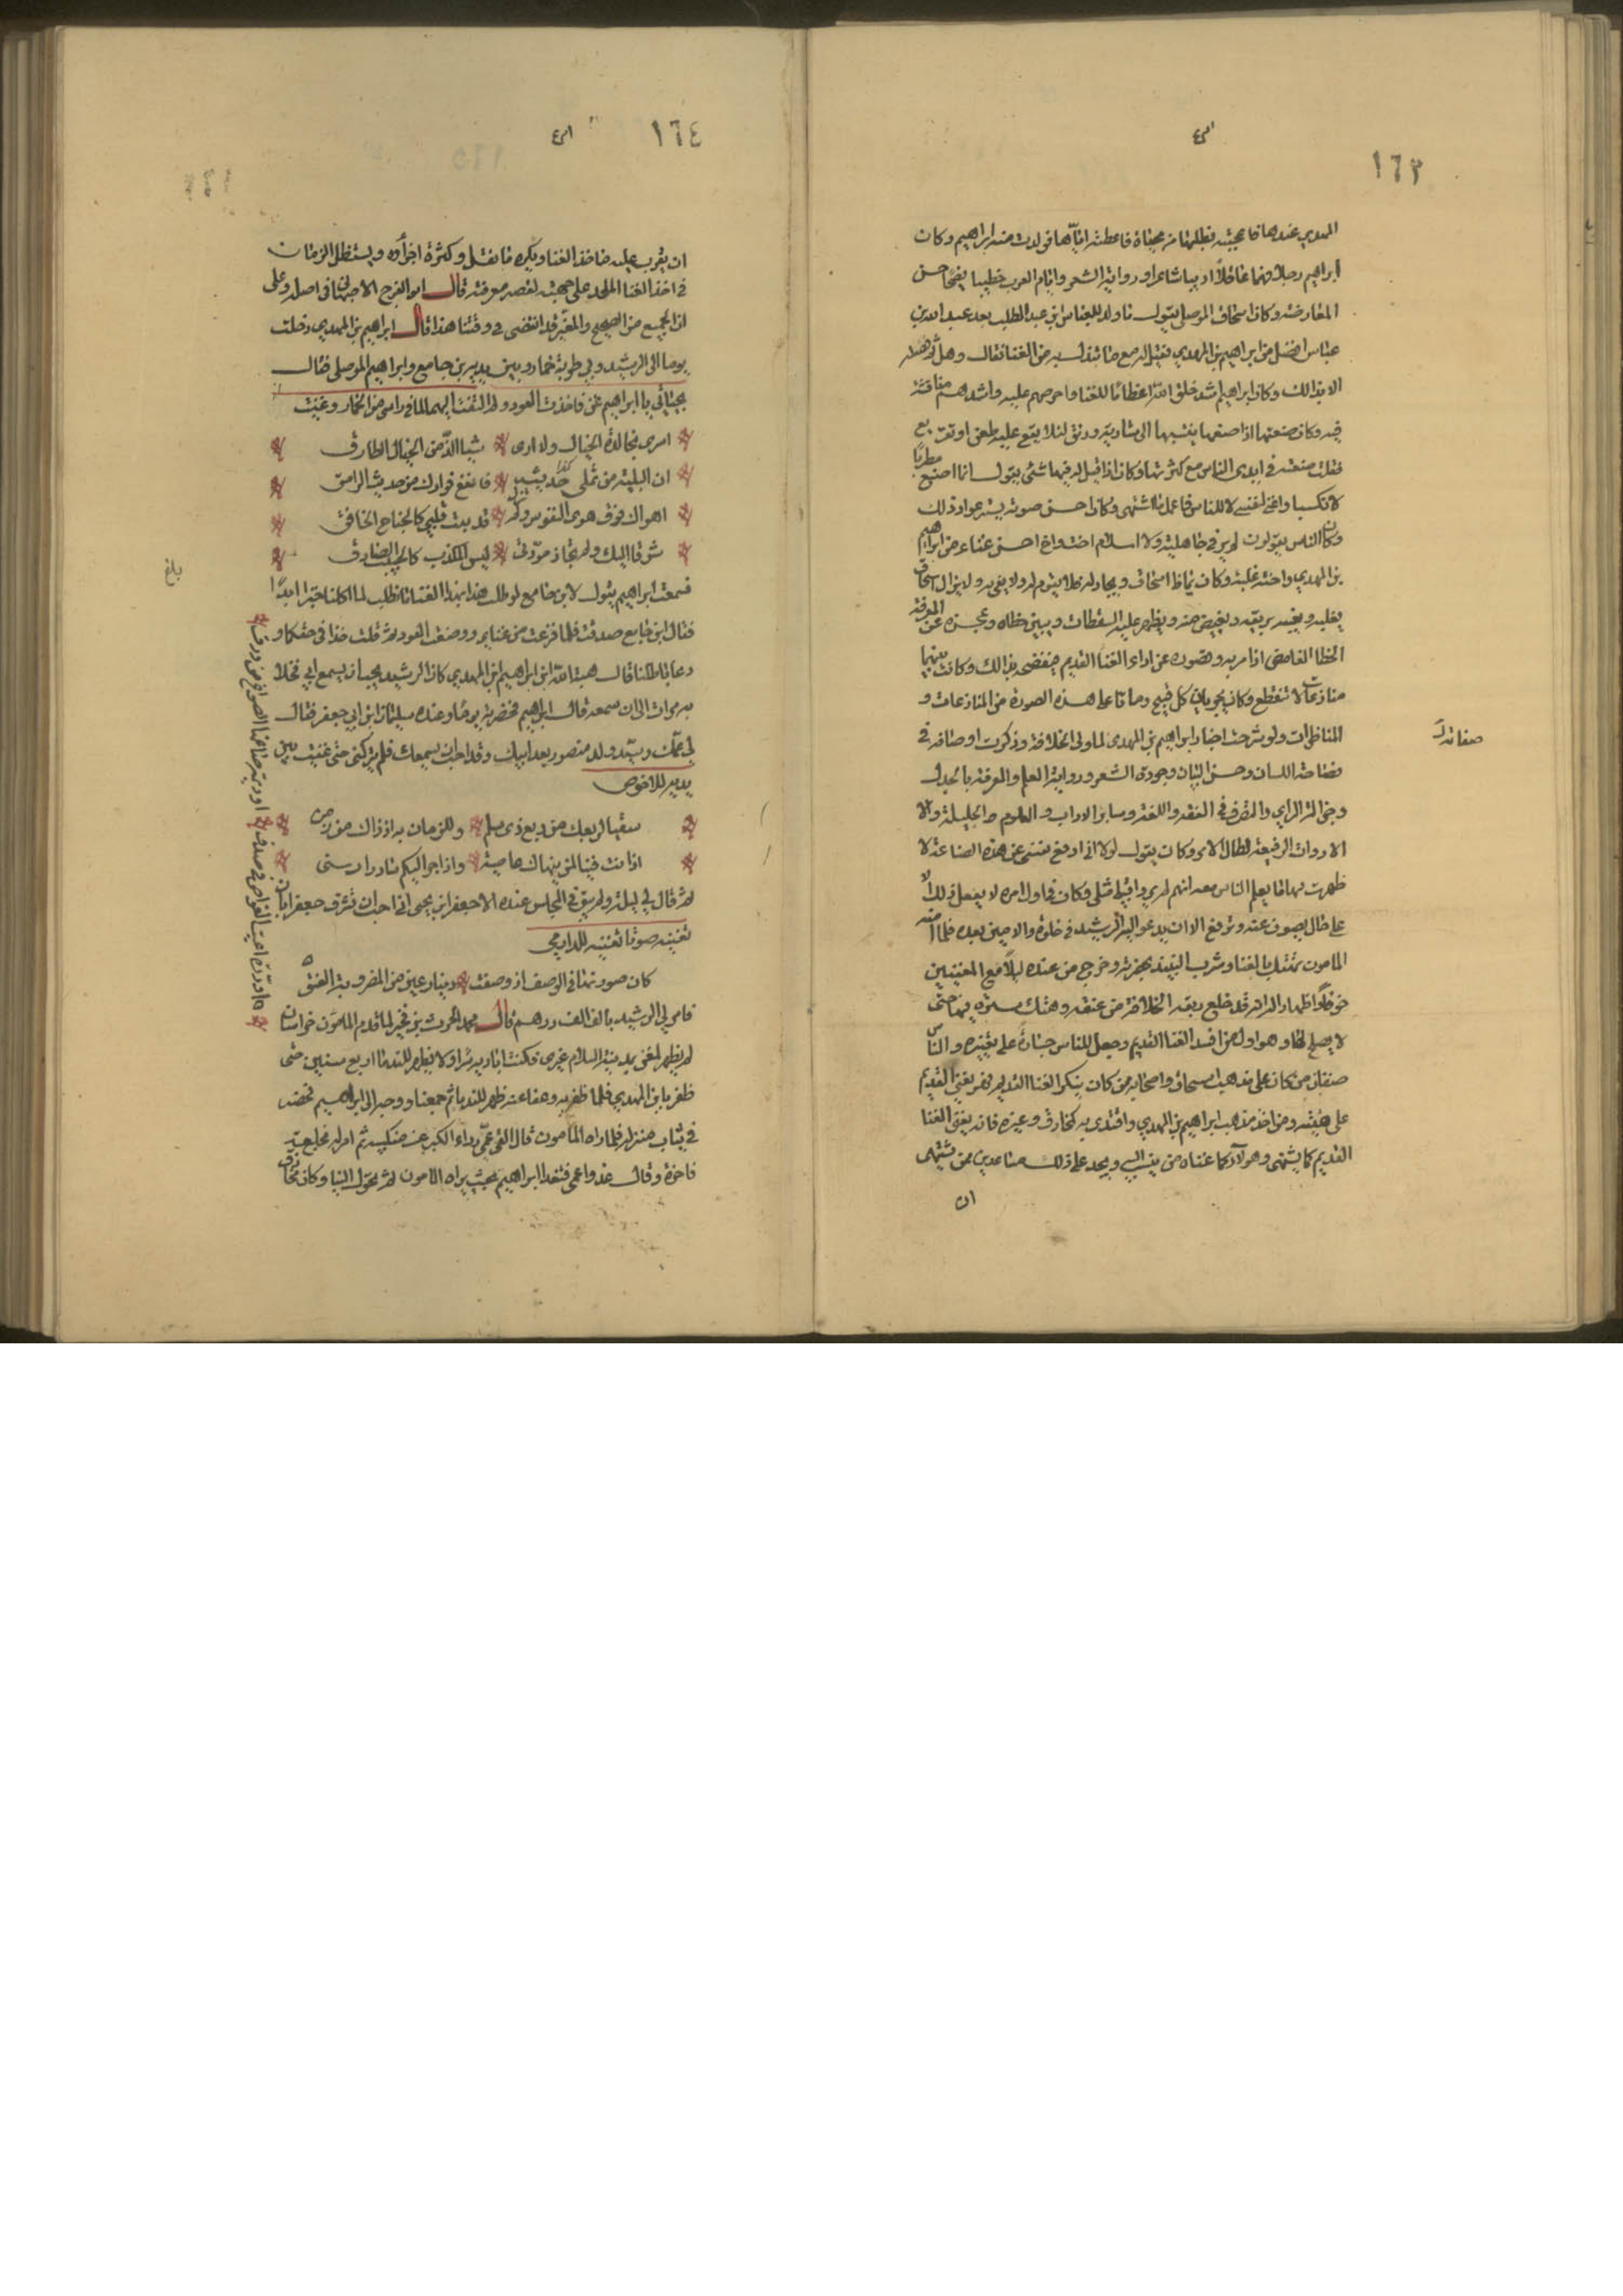 ١٦٣
المهدي عندها فاعجبته فطلبها من محياة فاعطته اياها فولدت منه ابراهيم وكان
ابراهيم رجلا فهما عاقلا اديبا شاعرا ورواية الشعر وايام العرب خطيبا فصيحا حسن
المعارضة وكان اسحاق الموصلي يقول ما ولد للعباس ابن عبد المطلب بعد عبد الله بن
عباس افضل من ابراهيم بن المهدي فقيل له مع ما تبذل به من الغنا فقال وهل تم فضله
الا بذالك وكان ابراهيم اشد خلق الله اعظاما للغنا واحرصهم عليه واشدهم منافسة
فيه وكان صنعته اذا صنعها ينسبها الى شاريه وريق لئلا يقع عليه طعن او تقريع
فقلت صنعته في ايدي الناس مع كثرتها وكان اذا قيل له فيها شئ يقول انما اصنع تطربا
لا تكسبا واغني لنفسي لا للناس فاعمل ما اشتهى وكان حسن صوته يستر عوار ذلك
وكان الناس يقولون لم ير في جاهلية ولا اسلام اخ واخ احسن غناء من ابراهيم
بن المهدي واخته علية وكان يماظ اسحاق ويجادله فلا يقوم له ولا يفي به ولا يزال اسحاق
يغلبه ويغصه بريقه ويغض منه ويظهر عليه السقطات ويبين خطاه وعجزه عن معرفة
الخطا الغامض اذا مر به وقصوره عن اداء الغنا القديم فيفضحه بذالك وكانت بينهما
منازعات لا تنقطع وكان يجري بينهما كل قبيح وماتا على هذه الصورة من المنازعات و
المناظرات ولو شرحت اخبار ابراهيم بن المهدى لما ولي الخلافة وذكرت اوصافه في
فصاحة اللسان وحسن البيان وجودة الشعر ورواية العلم والمعرفة بالجدل
وجزالة الراي والتصرف في الفقه واللغة وسائر الاداب والعلوم الجليلة والا
الادوات الرفيعة لطال الامر وكان يقول لولا اني ارفع نفسي عن هذه الصناعة لا
ظهرت فيها ما يعلم الناس معه انهم لم يروا قبلي مثلي وكان في اول امره لا يفعل ذلك الا
على حال تصون عنه وترفع الا ان يدعو اليه الرشيد في خلوة والامين بعده فلما امنه
المامون تهتك بالغنا وشرب النبيذ بحضرته وخرج من عنده ليلا مع المغنيين
خوفا واظهارا له انه قد خلع ربقة الخلافة من عنقه وهتك ستره فيها حتى
لا يصلح لها وهو اول من افسد الغنا القديم وجعل للناس جسارة على تغييره والناس
صنفان من كان على مذهب اسحاق واصحابه ممن كان ينكر الغنا القديم فهو يغني القديم
على هيئته ومن اخذ مذهب ابراهيم بن المهدي واقتدى به كمخارق وغيره فانه يغني الغنا
القديم كما يشتهى وهولاء كما غناه من ينسب اليه ويجد على ذلك مساعدين ممن يشتهى
ان
صفاته
١٦٤
ان يقرب عليه ماخذ الغنا ويكره ما ثقل وكثرة اجزاؤه ويستطيل الزمان
في اخذ الغنا الجيد على جهته لقصر معرفته قال ابو الفرج الاصبهاني في اصله وعلى
ان الجميع من الصحيح والمغير قد انقضى في وقتنا هذا قال ابراهيم بن المهدي دخلت
يوما الى الرشيد وبي طربة خمار وبين يديه بن جامع وابراهيم الموصلي فقال
بحياتي يا ابراهيم غن فاخذت العود ولم التفت اليهما لما في راسي من الخمار وغنيت
اسرى بخالدة الخيال ولا ارى شيا الذ من الخيال الطارق
ان البلية من تملى حديثه فانقع فوادك من حديث الوامق
اهواك فوق هوى النفوس ولم قد بت قلبي كالجناح الخافق
شوقا اليك ولم تجاز مودتي ليس المكذب كالحبيب الصادق
فسمعت ابراهيم يقول لابن جامع لو طلب هذا بهذا الغنا ما نطلب لما اكلنا خبزا ابدا
فقال ابن جامع صدقت فلما فرغت من غنائي ووضعت العود ثم قلت خذا في حقكما و
دعا باطلنا قال هبة الله ابن ابراهيم ابن المهدي كان الرشيد يحب ان يسمع ابي فخلا
به مرات الى ان سمعه قال ابراهيم فحضرته يوما وعنده سليمان ابن ابي جعفر فقال
لي عمك وسيد ولد منصور بعد ابيك وقد احب ان يسمعك فلم يتركني حتى غنيت بين
يديه للاحوص
سقيا لربعك من ربع ذي سلم وللزمان به اذ ذاك من زمن
اذ انت فينا لمن ينهاك عاصية واذ اجر اليكم سادرا رسنى
ثم قال لي ليلة ولم يبق في المجلس عنده الا جعفر ابن يحيى اني احب ان تشرف جعفرا بان
تغنيه صوتا فغنيته للدارمي
كان صورتها في الوصف اذ وصفت دينار عين من المضروبة العتق
فامر لي الرشيد بالف الف درهم قال محمد الحرث بن بخير لما قدم المامون خراسان
لم يظهر لمغن بمدينة السلام غيري فكنت انادمه سرا ولا يظهر للندما اربع سنين حتى
ظفر بابن المهدي فلما ظفر به وعفا عنه ظهر للندماء ثم جمعنا ووجه الى ابراهيم فحضر
في ثياب مبتذلة فلما راه المامون قال القي عمي رداء الكبر عن منكبيه ثم امر له بخلع
فاخرة وقال غدوا عمي فتغدا ابراهيم بحيث يراه المامون ثم تحول الينا وكان مخارق
بلغ
او درة اعيت الغواص في صدف او ذهب صاغه الصواغ من ورق